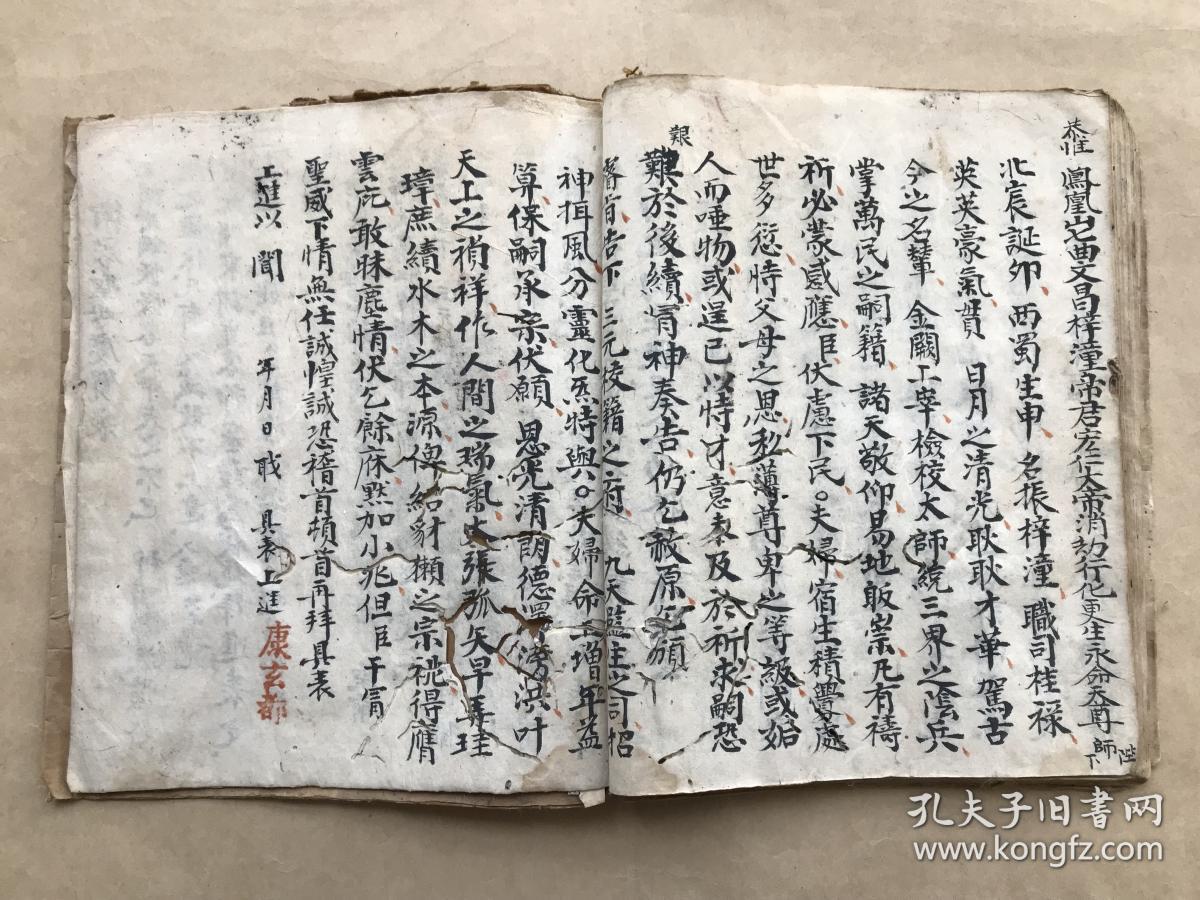 恭惟 鳳凰山七曲文昌梓潼帝君宏仁大帝消劫行化更生永命天尊師陛下
北宸誕卯 西蜀生申 名振梓潼 職司桂祿
英英豪氣貫 日月之清光耿耿才華駕古
今之名輩 金闕上宰檢校太師統三界之陰兵
掌萬民之嗣籍 諸天敬仰易地皈崇凡有禱
祈必蒙感應臣伏慮下民○夫婦宿生積釁處
世多愆恃父母之恩 薄尊卑之等級或妬
人而唾物或逞己以恃才意 及於祈求嗣恐
艱
難於後續 神奏告仍乞赦原 頒
告下 三元校籍之府 九天監生之司招
神揖風分靈化炁特與○夫婦命 增年益
算保嗣承宗伏願 恩光清 德澤滂洪叶
天上之禎祥作人間之瑞氣 張弧矢早弄
璋庶續水木之本源俾紹豺獺之宗祧得膺
雲庇敢昧塵情伏乞餘庥黙加小兆但臣干冒
聖威下情無任誠惶誠恐稽首頓首再拜具表
上進以 聞 年月日 職 具表上進 康玄都
孔夫子旧书网
www.kongfz.com